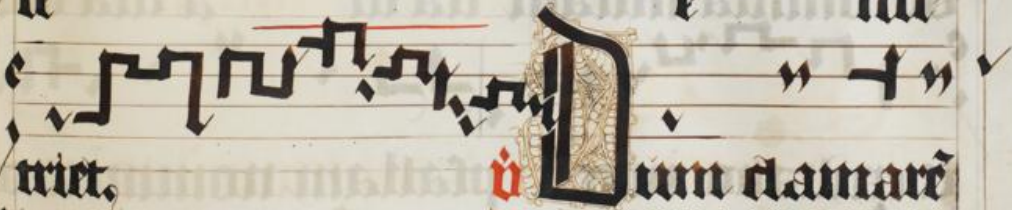 triet. v̇ Dum clamarē